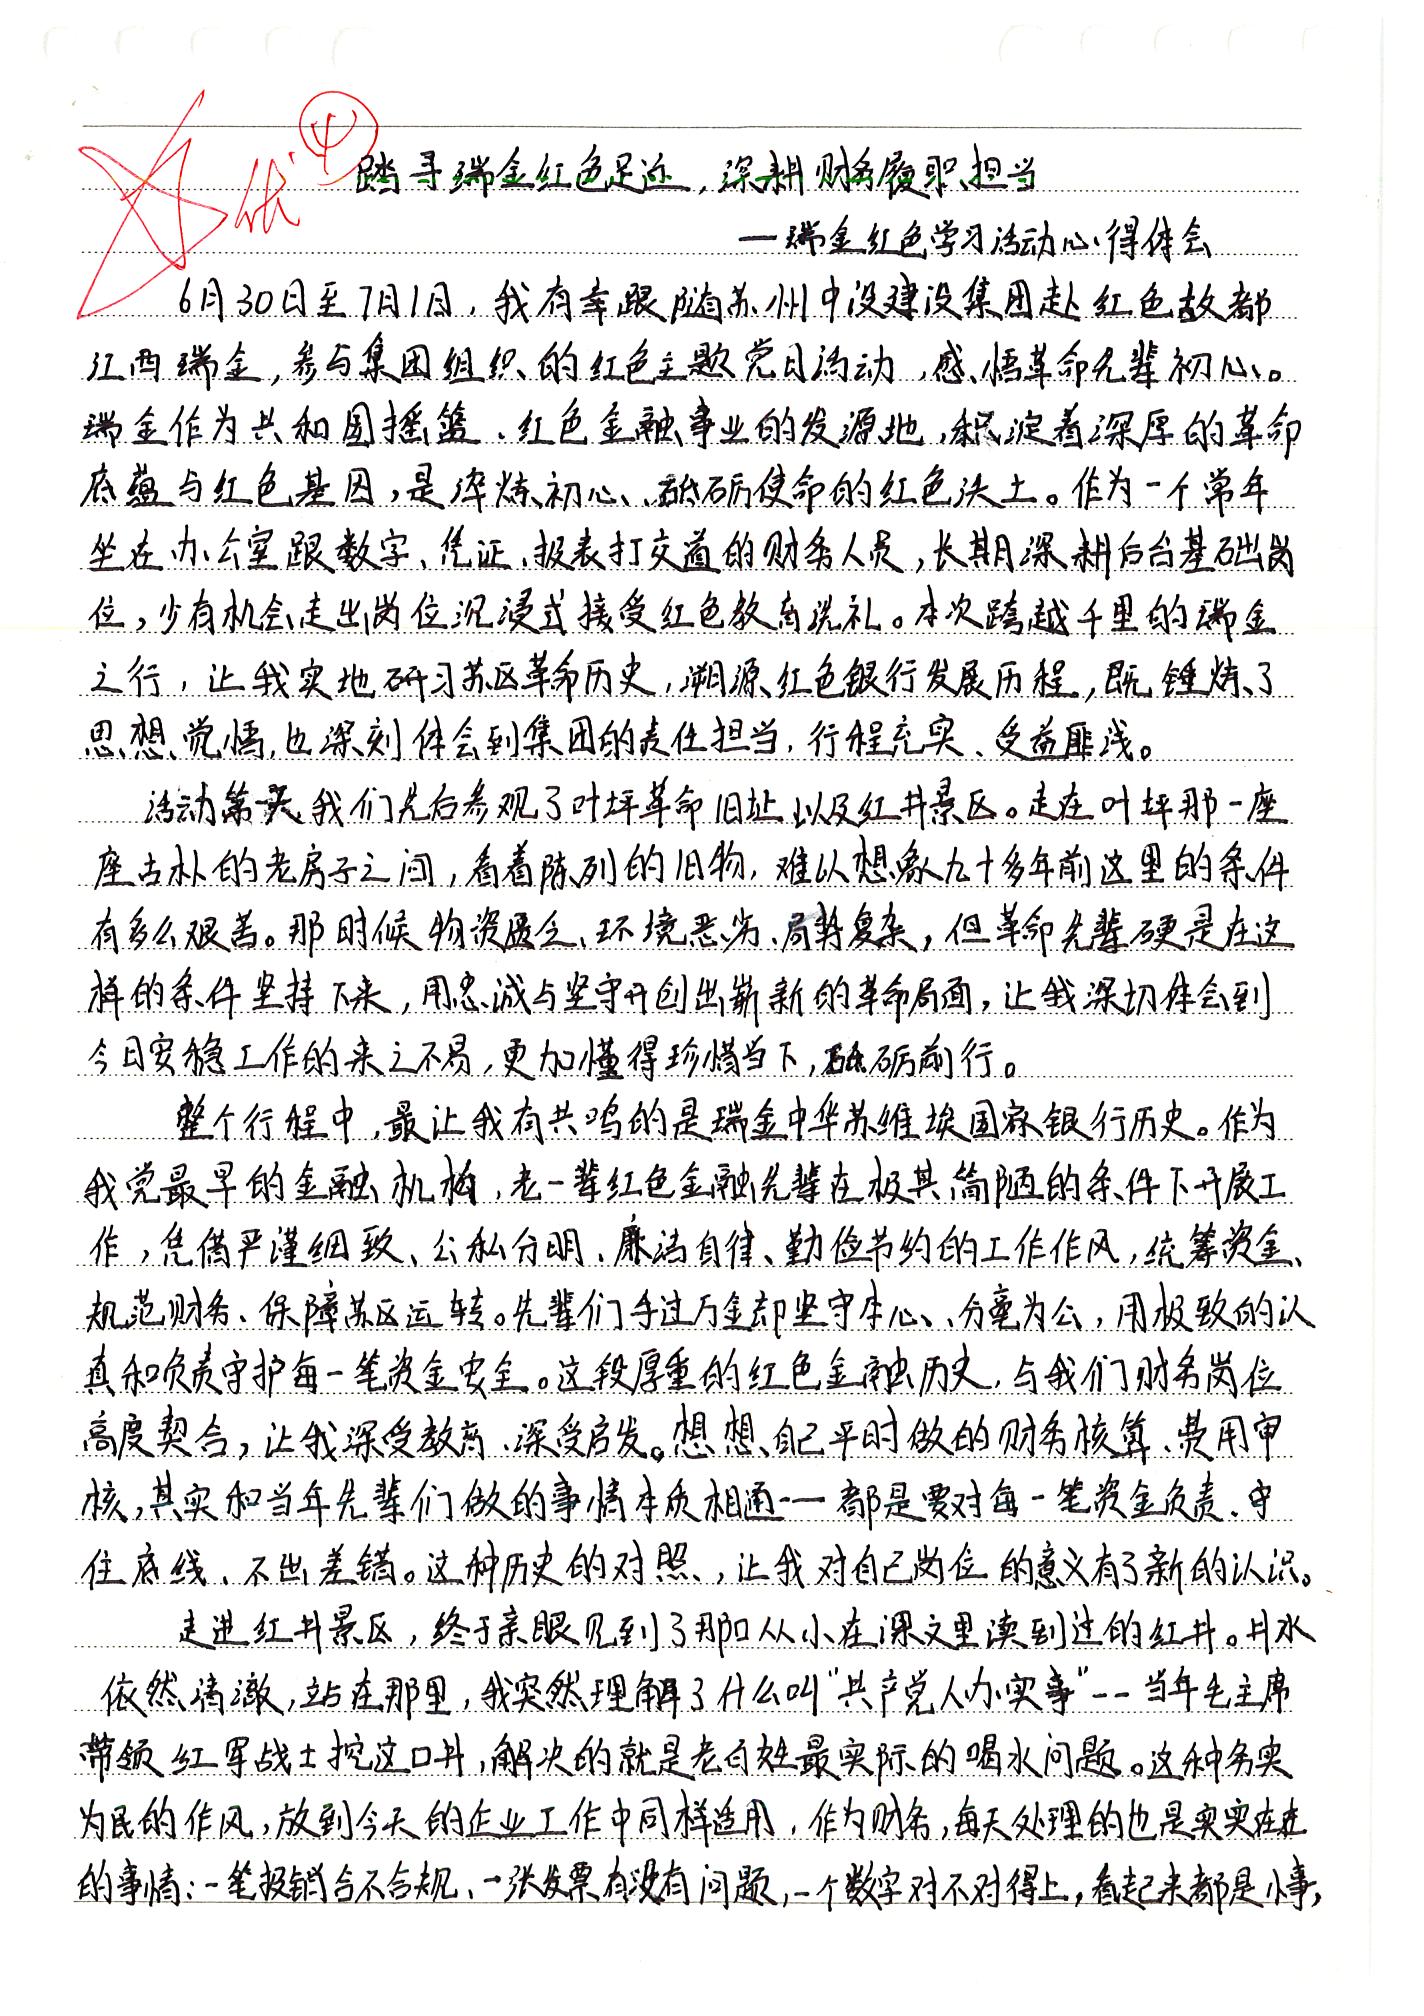 优 中
踏寻瑞金红色足迹，深耕财务履职担当
—瑞金红色学习活动心得体会
6月30日至7月1日，我有幸跟随苏州中设建设集团赴红色故都
江西瑞金，参与集团组织的红色主题党日活动，感悟革命先辈初心。
瑞金作为共和国摇篮、红色金融事业的发源地，积淀着深厚的革命
底蕴与红色基因，是淬炼初心、砥砺使命的红色沃土。作为一个常年
坐在办公室跟数字、凭证、报表打交道的财务人员，长期深耕后台基础岗
位，少有机会走出岗位沉浸式接受红色教育洗礼。本次跨越千里的瑞金
之行，让我实地研习苏区革命历史，溯源红色银行发展历程，既锤炼了
思想觉悟，也深刻体会到集团的责任担当，行程充实、受益匪浅。
活动第一天，我们先后参观了叶坪革命旧址以及红井景区。走在叶坪那一座
座古朴的老房子之间，看着陈列的旧物，难以想象九十多年前这里的条件
有多么艰苦。那时候物资匮乏、环境恶劣、局势复杂，但革命先辈硬是在这
样的条件坚持下来，用忠诚与坚守开创出崭新的革命局面，让我深切体会到
今日安稳工作的来之不易，更加懂得珍惜当下，砥砺前行。
整个行程中，最让我有共鸣的是瑞金中华苏维埃国家银行历史。作为
我党最早的金融机构，老一辈红色金融先辈在极其简陋的条件下开展工
作，凭借严谨细致、公私分明、廉洁自律、勤俭节约的工作作风，统筹资金、
规范财务、保障苏区运转。先辈们手过万金却坚守本心、分毫为公，用极致的认
真和负责守护每一笔资金安全。这段厚重的红色金融历史，与我们财务岗位
高度契合，让我深受教育、深受启发。想想自己平时做的财务核算、费用审
核，其实和当年先辈们做的事情本质相通——都是要对每一笔资金负责、守
住底线、不出差错。这种历史的对照，让我对自己岗位的意义有了新的认识。
走进红井景区，终于亲眼见到了那口从小在课文里读到过的红井。井水
依然清澈，站在那里，我突然理解了什么叫“共产党人办实事”——当年毛主席
带领红军战士挖这口井，解决的就是老百姓最实际的喝水问题。这种务实
为民的作风，放到今天的企业工作中同样适用，作为财务，每天处理的也是实实在在
的事情：一笔报销合不合规、一张发票有没有问题，一个数字对不对得上，看起来都是小事，